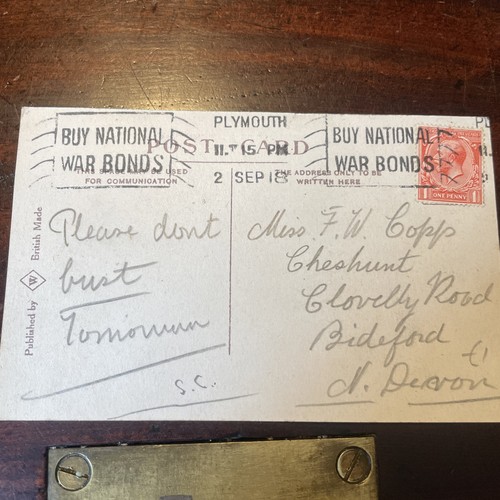 PLYMOUTH
BUY NATIONAL
WAR BONDS
11. 15 PM
2 SEP 18
BUY NATIONAL
WAR BONDS
POST CARD
THIS SPACE MAY BE USED
FOR COMMUNICATION
THE ADDRESS ONLY TO BE
WRITTEN HERE
1 ONE PENNY 1
Please dont
bust
Tomorrow
S.C.
Miss F. W. Copp
Cheshunt
Clovelly Road
Bideford
N. Devon
Published by W British Made